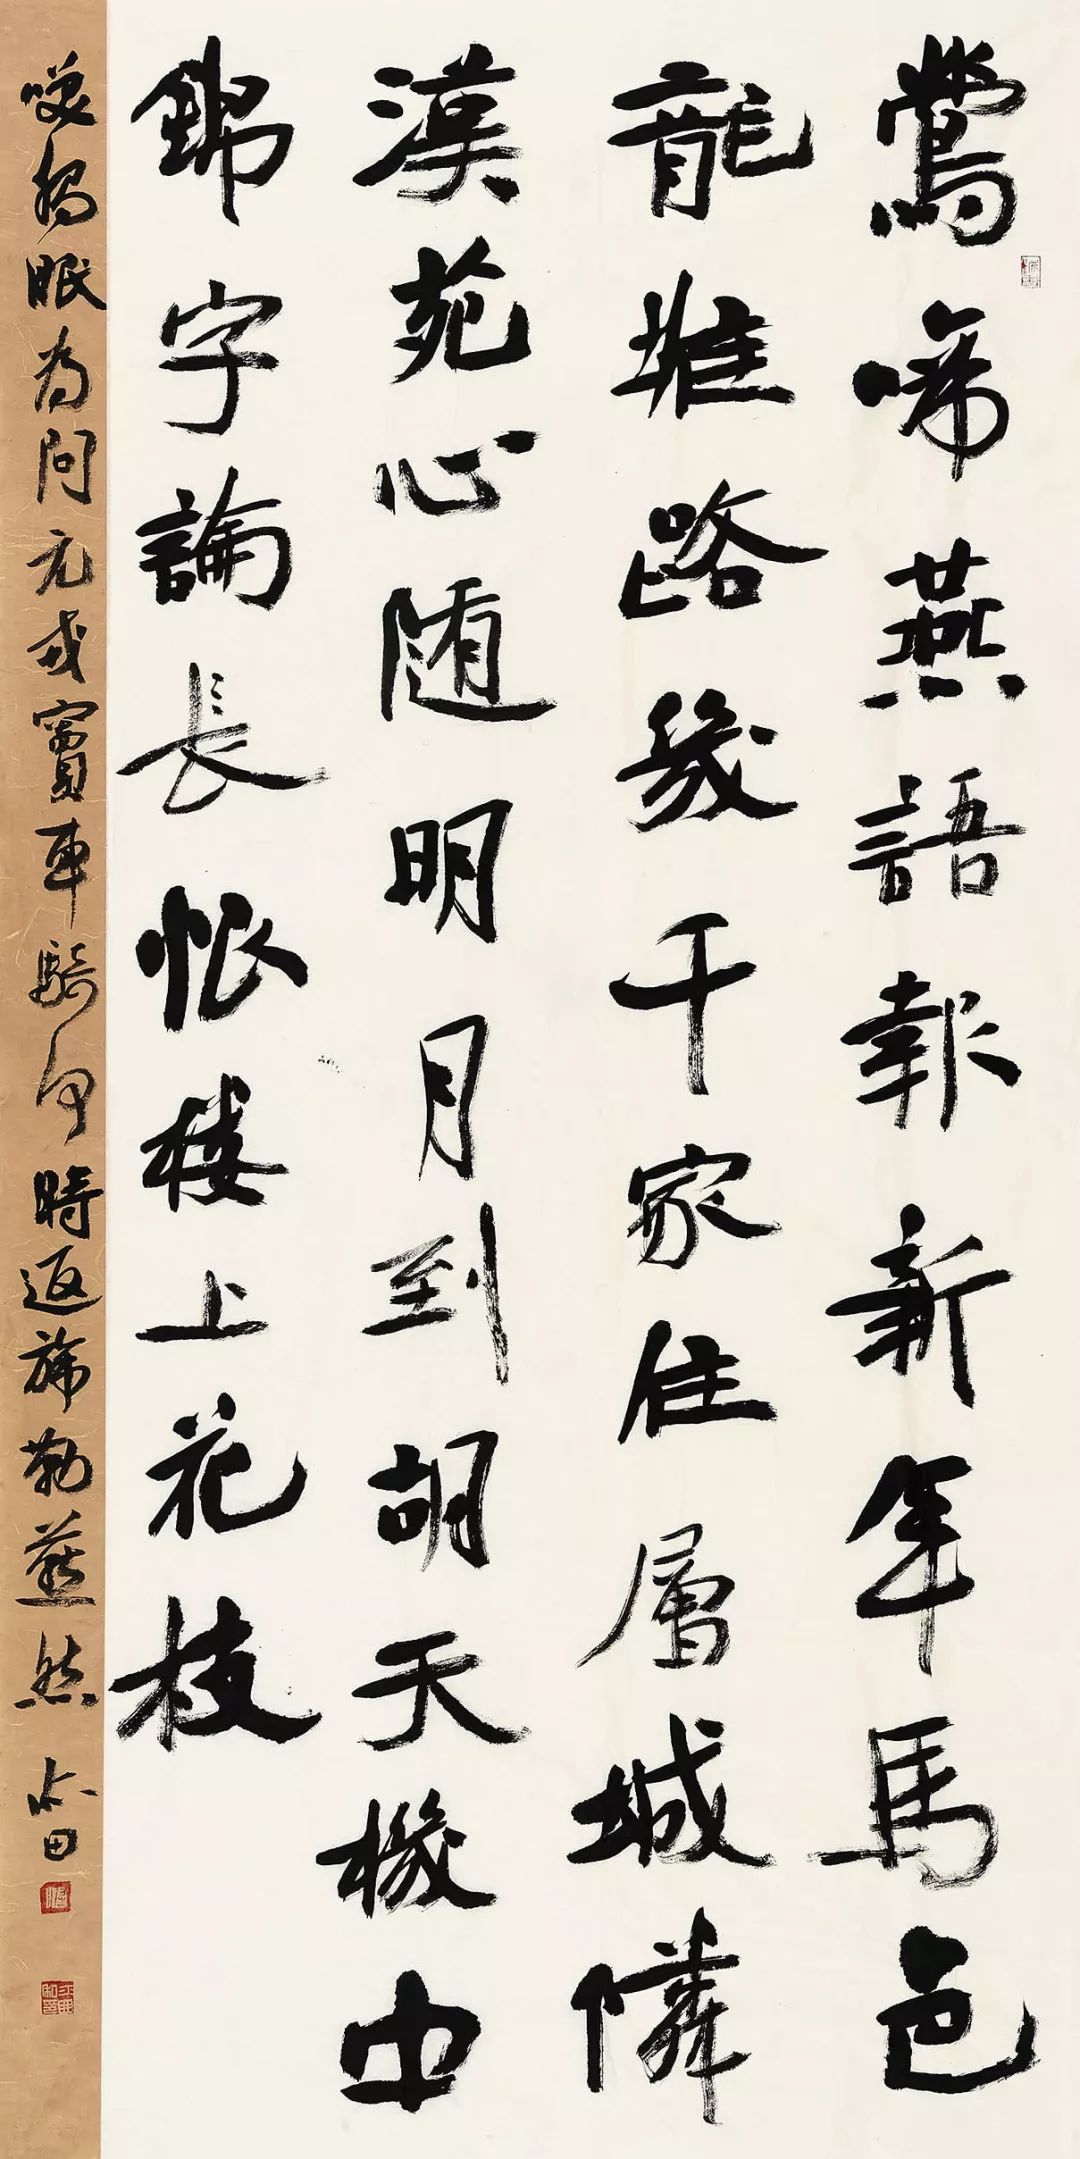 鶯啼燕語報新年馬邑
龍堆路幾千家住層城隣
漢苑心随明月到胡天機中
錦字論長恨楼上花枝
咲獨眠為問元戎竇車騎何時返旆勒燕然